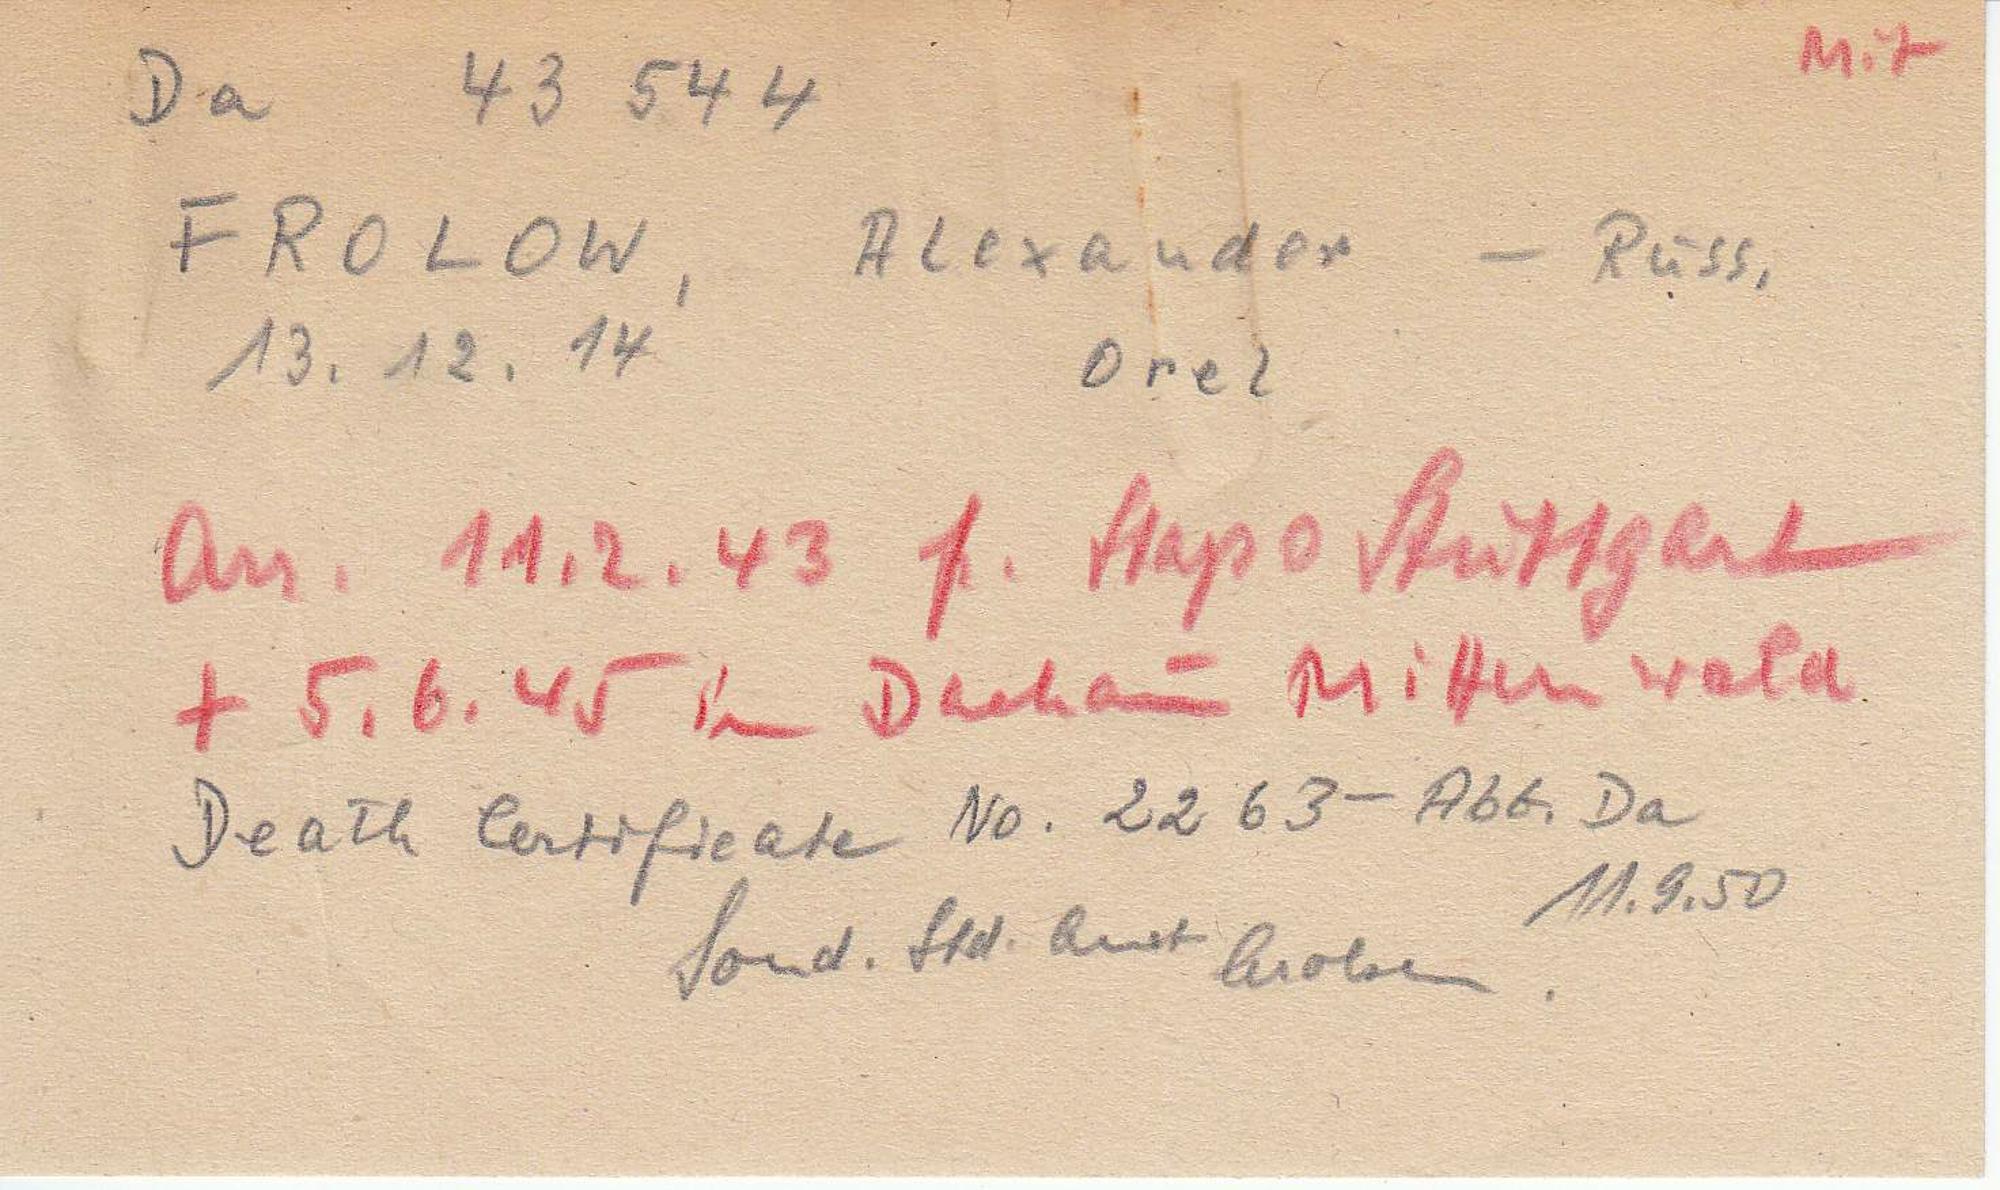 Mit
Da 43 544
FROLOW, Alexander – Russ.
13. 12. 14 Orel
Arr. 11.2.43 f. Stapo Stuttgart
+ 5.6.45 in Dachau Mittenwald
Death Certificate No. 2263 – Abt. Da
11.9.50
Sond. Std. Amt Arolsen.